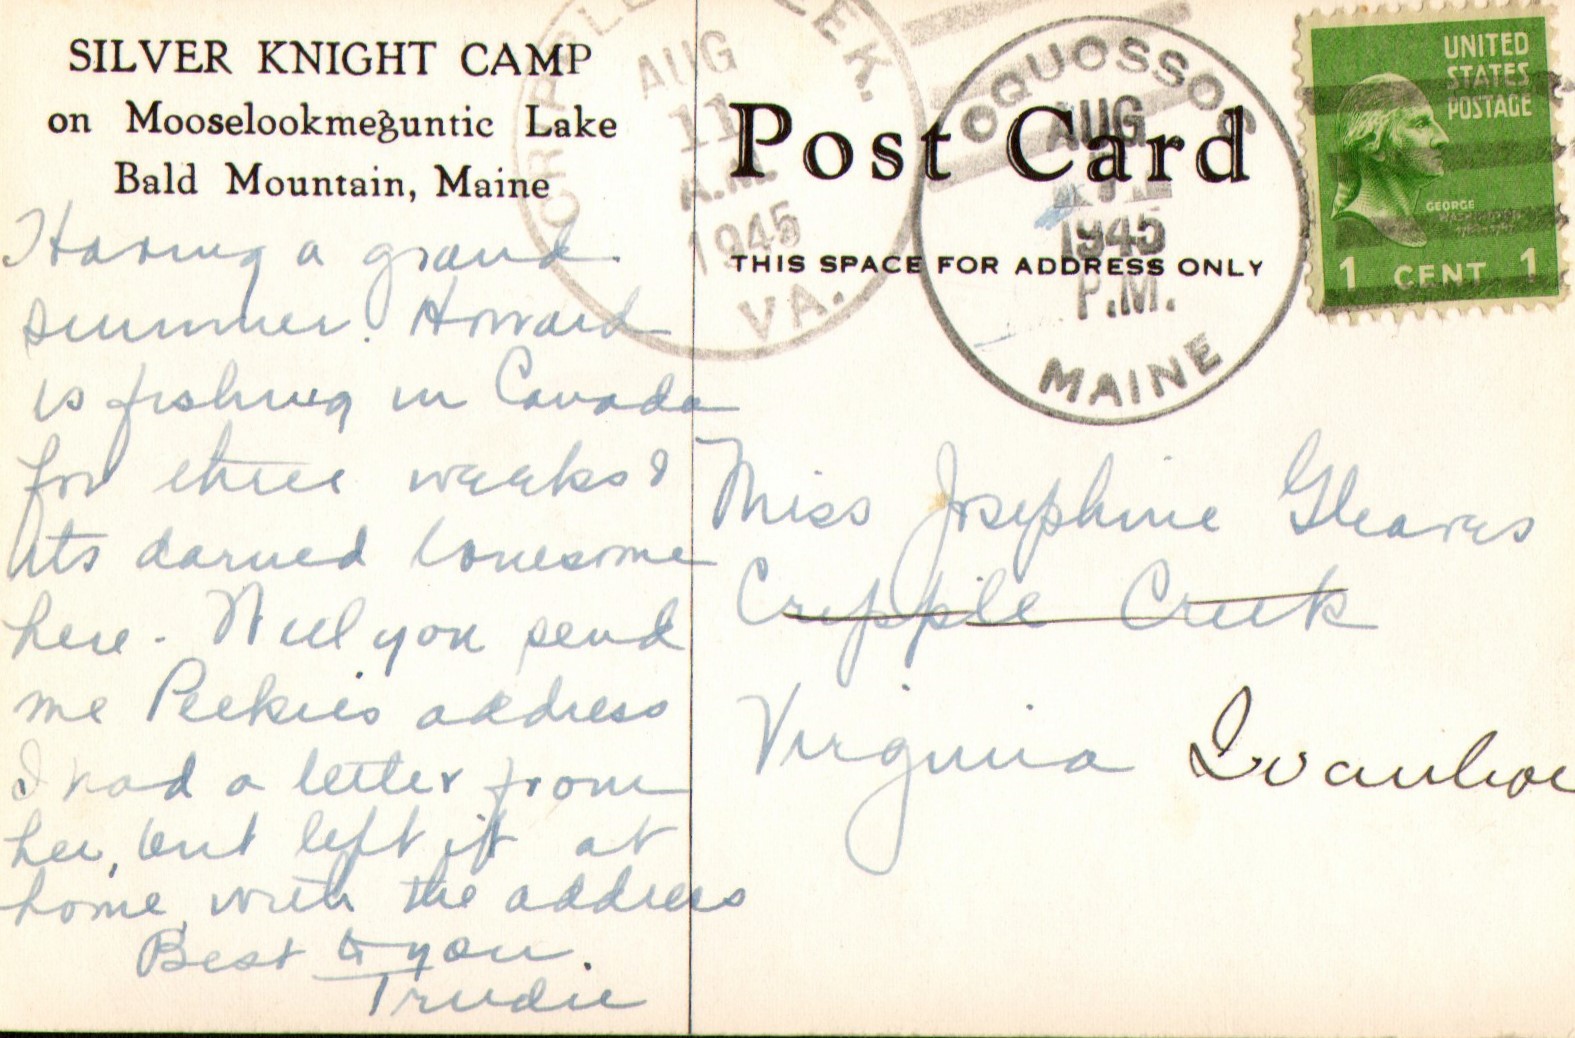 SILVER KNIGHT CAMP
on Mooselookmeguntic Lake
Bald Mountain, Maine
Having a grand
summer. Howard
is fishing in Canada
for three weeks &
its darned lonesome
here - Will you send
me Peekies address
I had a letter from
her, but left it at
home with the address
Best to you.
Trudie
CREEK.
AUG
11
A.M.
1945
VA.
Post Card
THIS SPACE FOR ADDRESS ONLY
OQUOSSOC
AUG
1945
P.M.
MAINE
UNITED
STATES
POSTAGE
GEORGE
WASHINGTON
1 CENT 1
Miss Josephine Gleaves
Cripple Creek
Virginia Ivanhoe